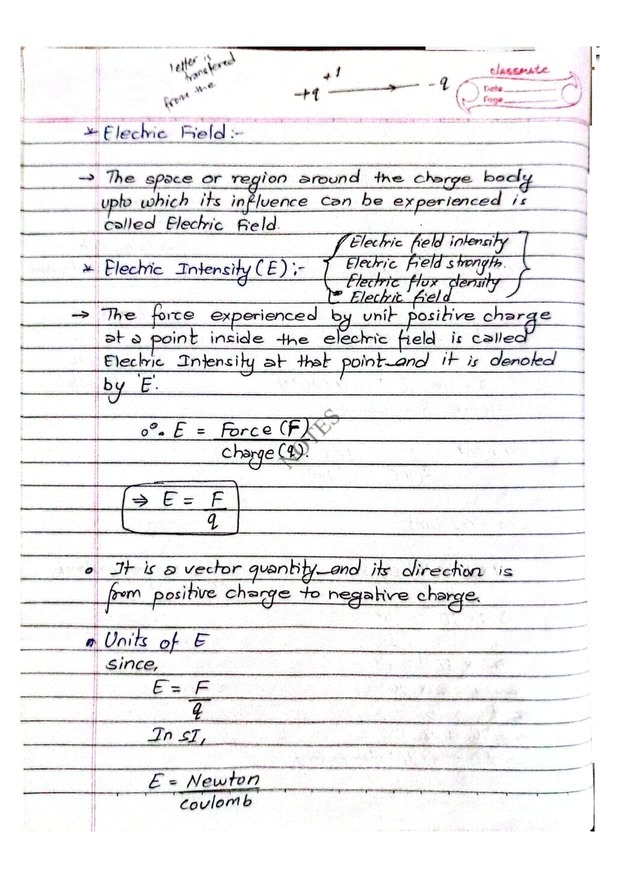 letter is
transferred
from the
+1
+q → -q
classmate
Date
Page
* Electric Field:-
→ The space or region around the charge body
upto which its influence can be experienced is
called Electric Field.
Electric field intensity
* Electric Intensity (E):- Electric Field strength.
Electric flux density
Electric field
→ The force experienced by unit positive charge
at a point inside the electric field is called
Electric Intensity at that point and it is denoted
by 'E'.
∴ E = Force (F)
charge (q).
NOTES
⇒ E = F
q
• It is a vector quantity and its direction is
from positive charge to negative charge.
• Units of E
since,
E = F
q
In SI,
E = Newton
coulomb